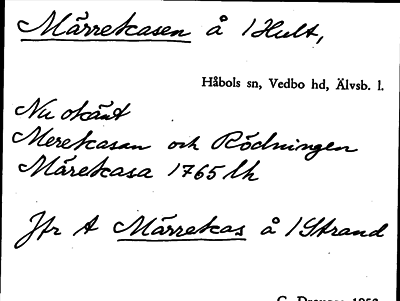 Märrekasen å 1 Hult,
Håbols sn, Vedbo hd, Älvsb. l.
Nu okänt
Merekasan och Rödningen
Märekasa 1765 lh
Jfr A Märrekas å 1 Strand